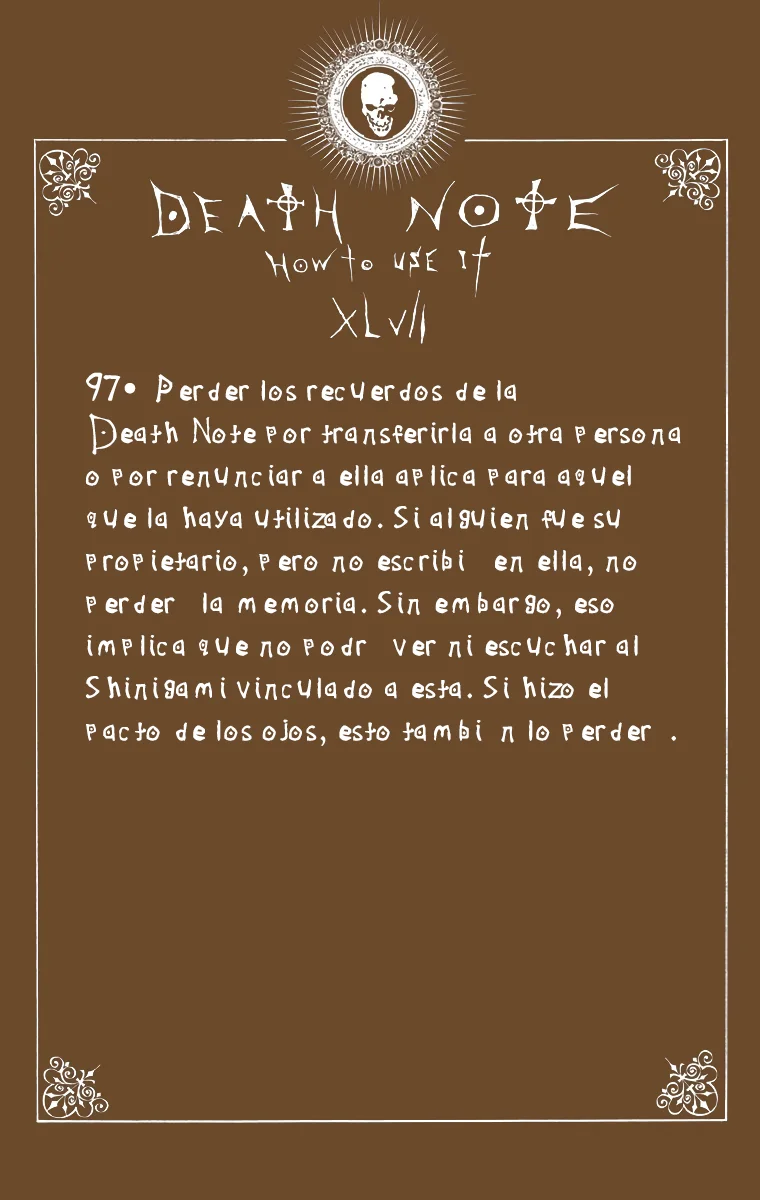 DEATH NOTE
HOW to USE It
XLVII
97• Perder los recuerdos de la
Death Note por transferirla a otra persona
o por renunciar a ella aplica para aquel
que la haya utilizado. Si alguien fue su
propietario, pero no escribi en ella, no
perder la memoria. Sin embargo, eso
implica que no podr ver ni escuchar al
Shinigami vinculado a esta. Si hizo el
pacto de los ojos, esto tambi n lo perder .